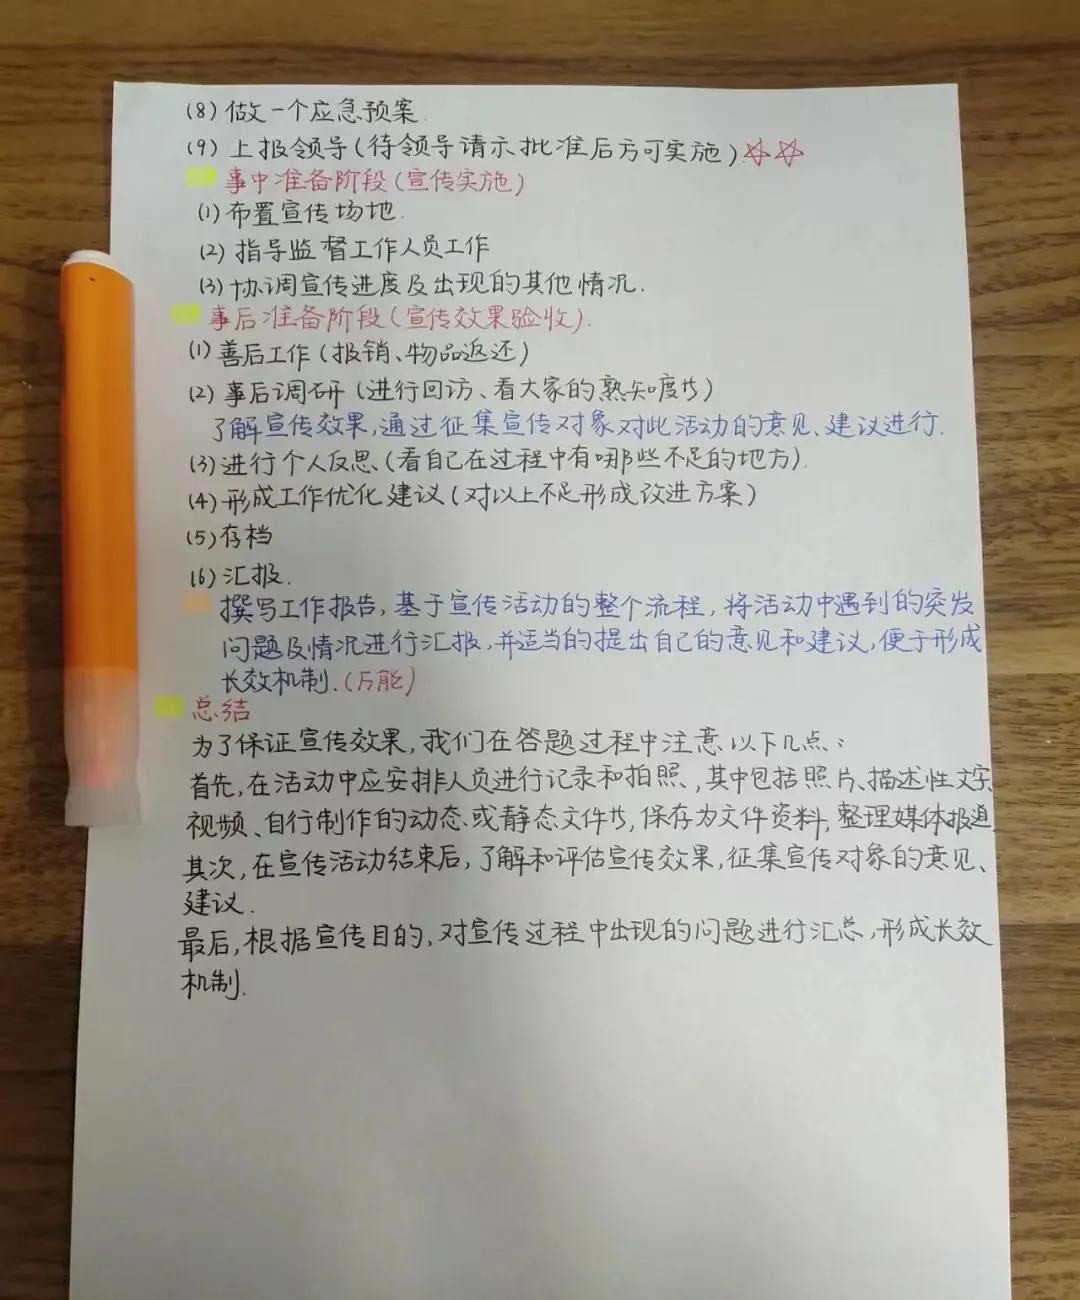 (8) 做一个应急预案
(9) 上报领导(待领导请示批准后方可实施)☆☆
事中准备阶段(宣传实施)
(1) 布置宣传场地.
(2) 指导监督工作人员工作
(3) 协调宣传进度及出现的其他情况.
事后准备阶段(宣传效果验收).
(1) 善后工作(报销、物品返还)
(2) 事后调研(进行回访、看大家的熟知度等)
了解宣传效果,通过征集宣传对象对此活动的意见、建议进行.
(3) 进行个人反思、(看自己在过程中有哪些不足的地方).
(4) 形成工作优化建议(对以上不足形成改进方案)
(5) 存档
(6) 汇报.
撰写工作报告,基于宣传活动的整个流程,将活动中遇到的突发
问题及情况进行汇报,并适当的提出自己的意见和建议,便于形成
长效机制.(万能)
总结
为了保证宣传效果,我们在答题过程中注意以下几点:
首先,在活动中应安排人员进行记录和拍照,其中包括照片、描述性文字、
视频、自行制作的动态或静态文件等,保存为文件资料,整理媒体报道.
其次,在宣传活动结束后,了解和评估宣传效果,征集宣传对象的意见、
建议.
最后,根据宣传目的,对宣传过程中出现的问题进行汇总,形成长效
机制.